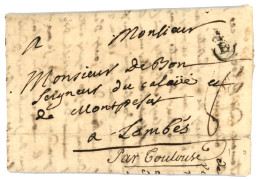 A Monsieur
Monsieur De Bon
Seigneur du et
de Montpesat
a Lombés
Par Toulouse